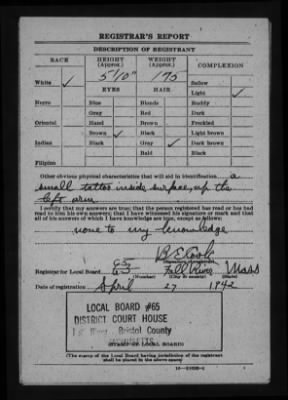 REGISTRAR'S REPORT
DESCRIPTION OF REGISTRANT
RACE HEIGHT (Approx.) WEIGHT (Approx.) COMPLEXION
5'10" 175
White ✓ EYES HAIR Sallow
Light ✓
Negro Blue Blonde Ruddy
Gray Red Dark
Oriental Hazel Brown Freckled
Brown ✓ Black Light brown
Indian Black Gray ✓ Dark brown
Bald Black
Filipino
Other obvious physical characteristics that will aid in identification a
small tattoo inside surface, up the
left arm
I certify that my answers are true; that the person registered has read or has had
read to him his own answers; that I have witnessed his signature or mark and that
all of his answers of which I have knowledge are true, except as follows:
none to my knowledge
B. E. Cook
Registrar for Local Board 65 Fall River Mass
(Number) (City or county) (State)
Date of registration April 27 1942
LOCAL BOARD #65
DISTRICT COURT HOUSE
Bristol County
(STAMP OF LOCAL BOARD)
(The stamp of the Local Board having jurisdiction of the registrant
shall be placed in the above space)